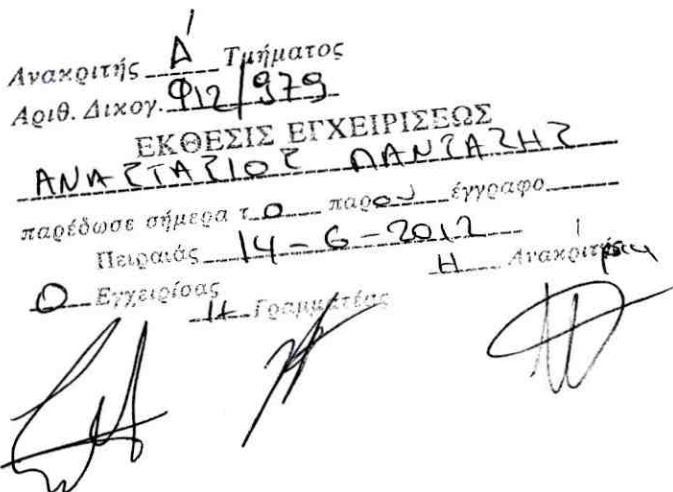 Ανακριτής Α' Τμήματος
Αριθ. Δικογ. Φ12/979
ΕΚΘΕΣΙΣ ΕΓΧΕΙΡΙΣΕΩΣ
ΑΝΑΣΤΑΣΙΟΣ ΠΑΝΤΑΖΗΣ
παρέδωσε σήμερα το παρον έγγραφο
Πειραιάς 14-6-2012
Ο Εγχειρίσας Η Γραμματέας Η Ανακρίτρια